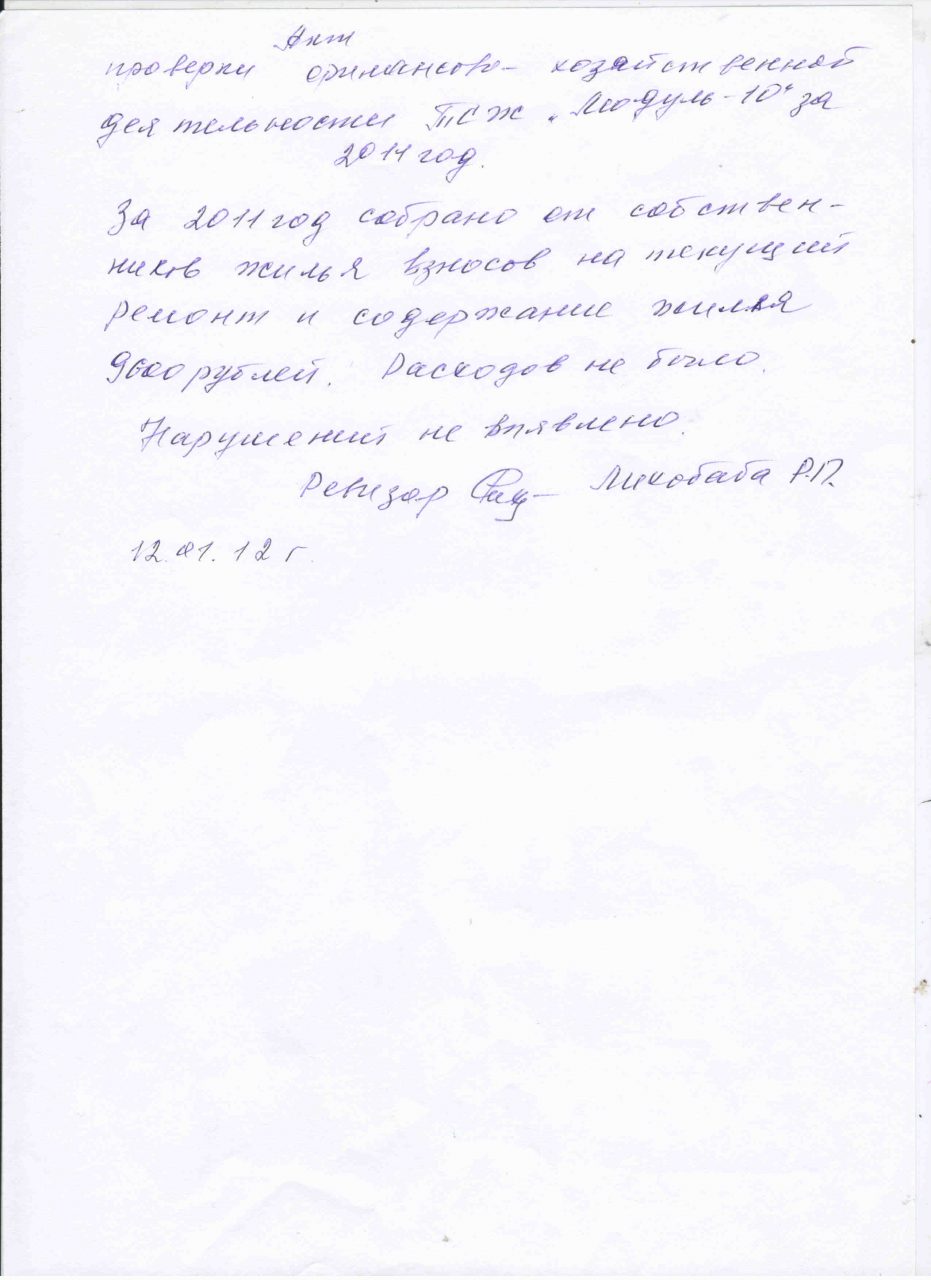 Акт
проверки финансово- хозяйственной
деятельности ТСЖ „Модуль-10“ за
2011 год.
За 2011 год собрано от собствен-
ников жилья взносов на текущий
ремонт и содержание жилья
рублей. Расходов не было.
Нарушений не выявлено.
Ревизор Лихобаба Р.П.
12.01.12 г.